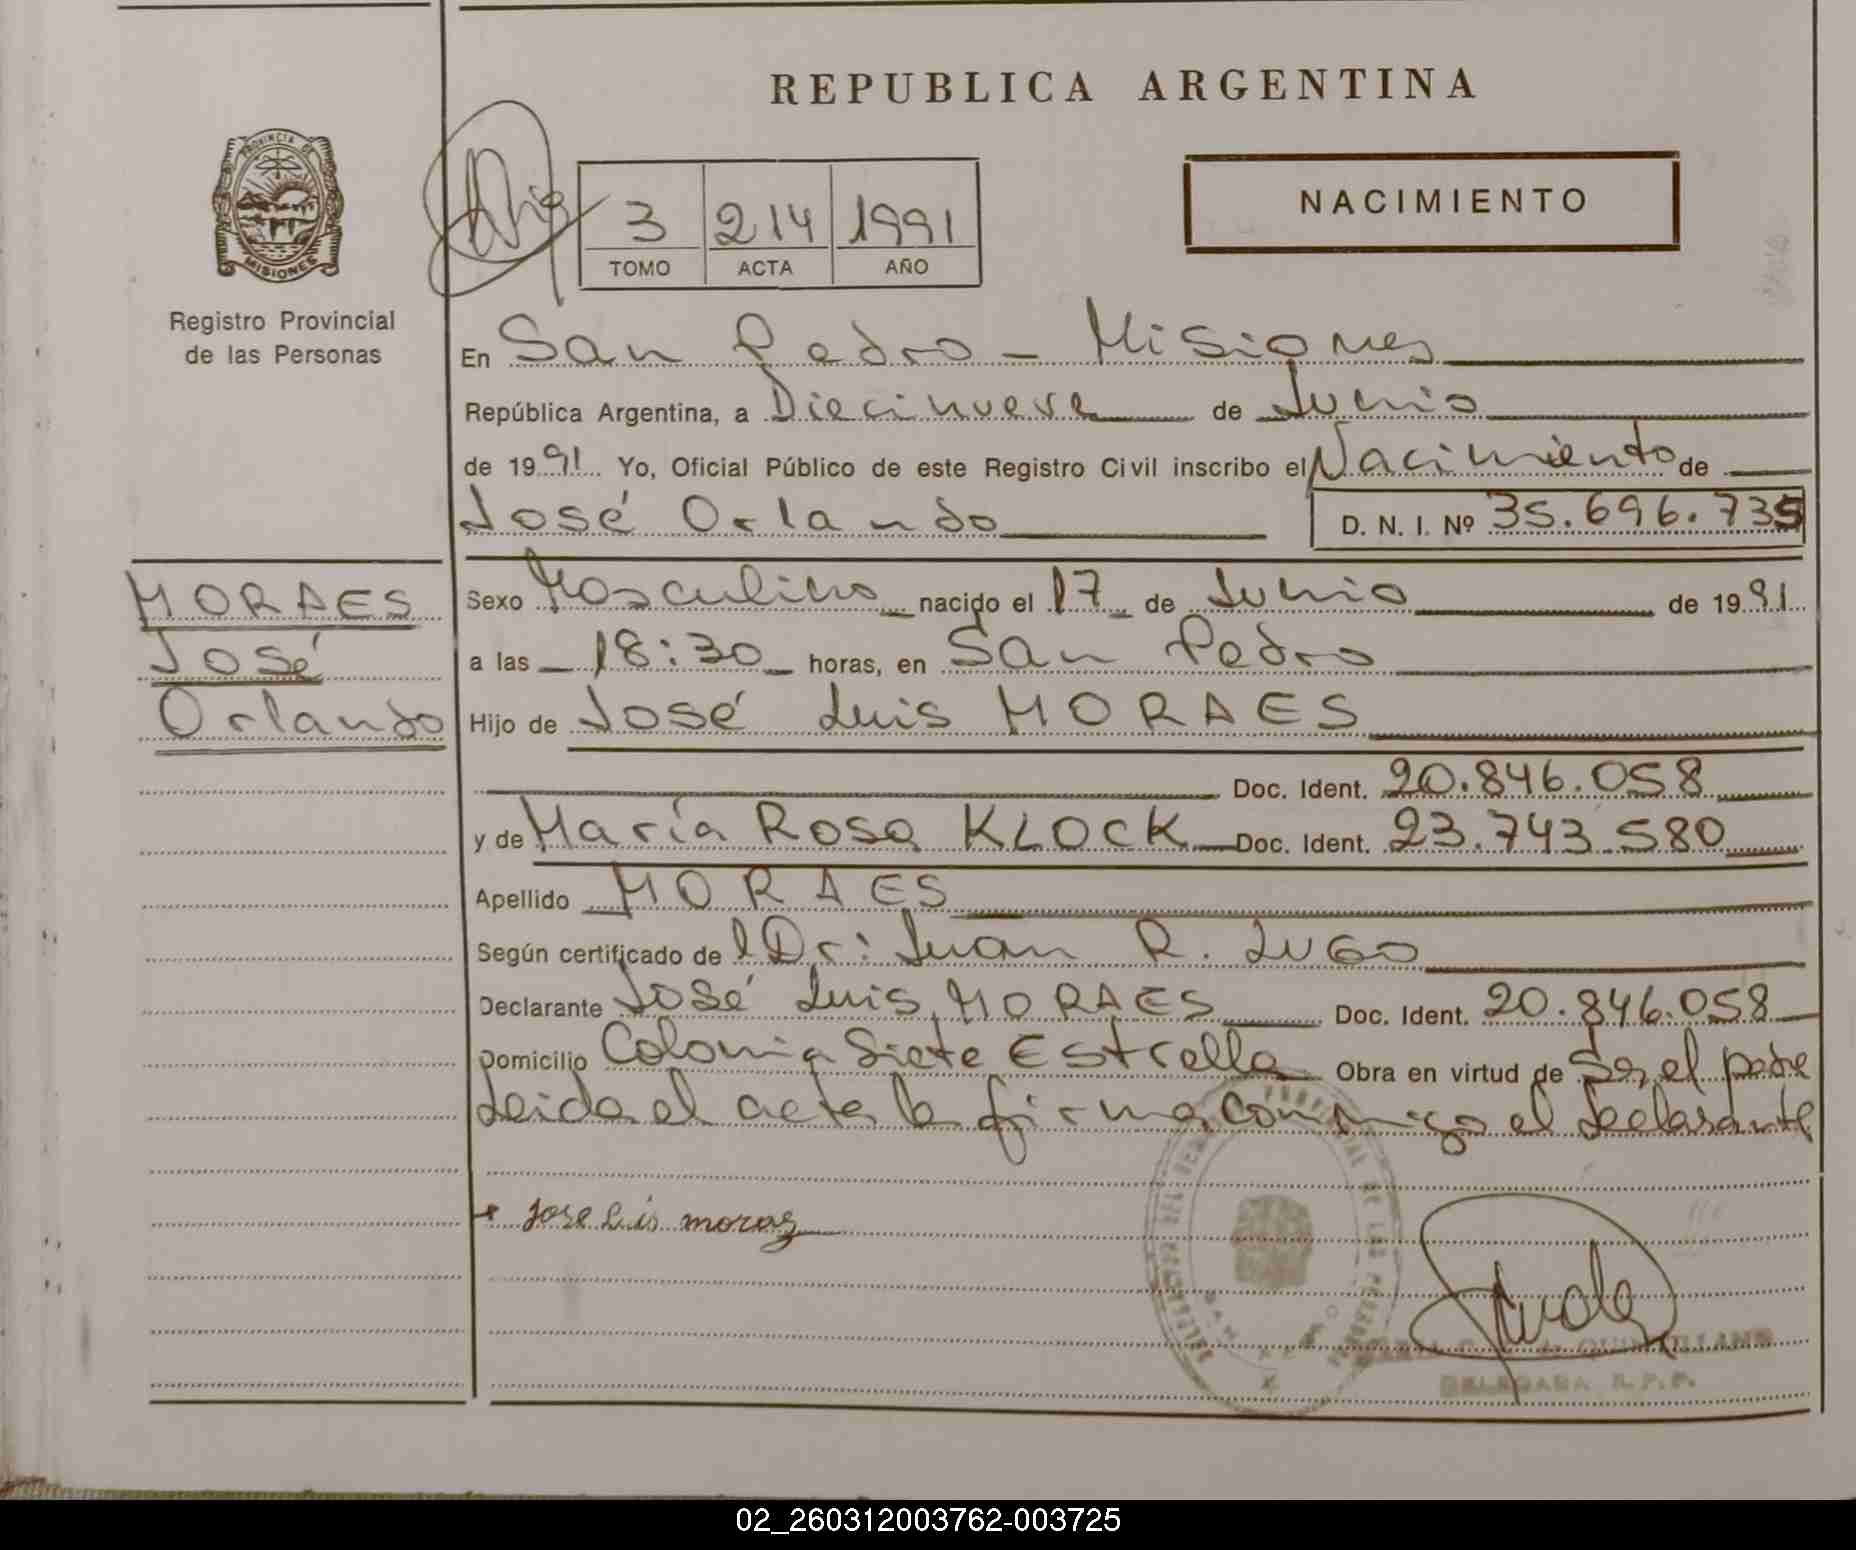 REPUBLICA ARGENTINA
PROVINCIA DE
MISIONES
Registro Provincial
de las Personas
3 214 1991
TOMO ACTA AÑO
NACIMIENTO
En San Pedro - Misiones
República Argentina, a Diecinueve de Junio
de 1991 Yo, Oficial Público de este Registro Civil inscribo el Nacimiento de
José Orlando D. N. I. Nº 35.696.735
MORAES
José
Orlando
Sexo Masculino nacido el 17 de Junio de 1991
a las 18:30 horas, en San Pedro
Hijo de José Luis MORAES
Doc. Ident. 20.846.058
y de María Rosa KLOCK Doc. Ident. 23.743.580
Apellido MORAES
Según certificado de l Dr: Juan R. LUGO
Declarante José Luis MORAES Doc. Ident. 20.846.058
Domicilio Colonia Siete Estrella Obra en virtud de Ser el padre
Leida el acta la firma conmigo el declarante
Jose Luis moraes
DELEGADA R.P.P.
02_260312003762-003725